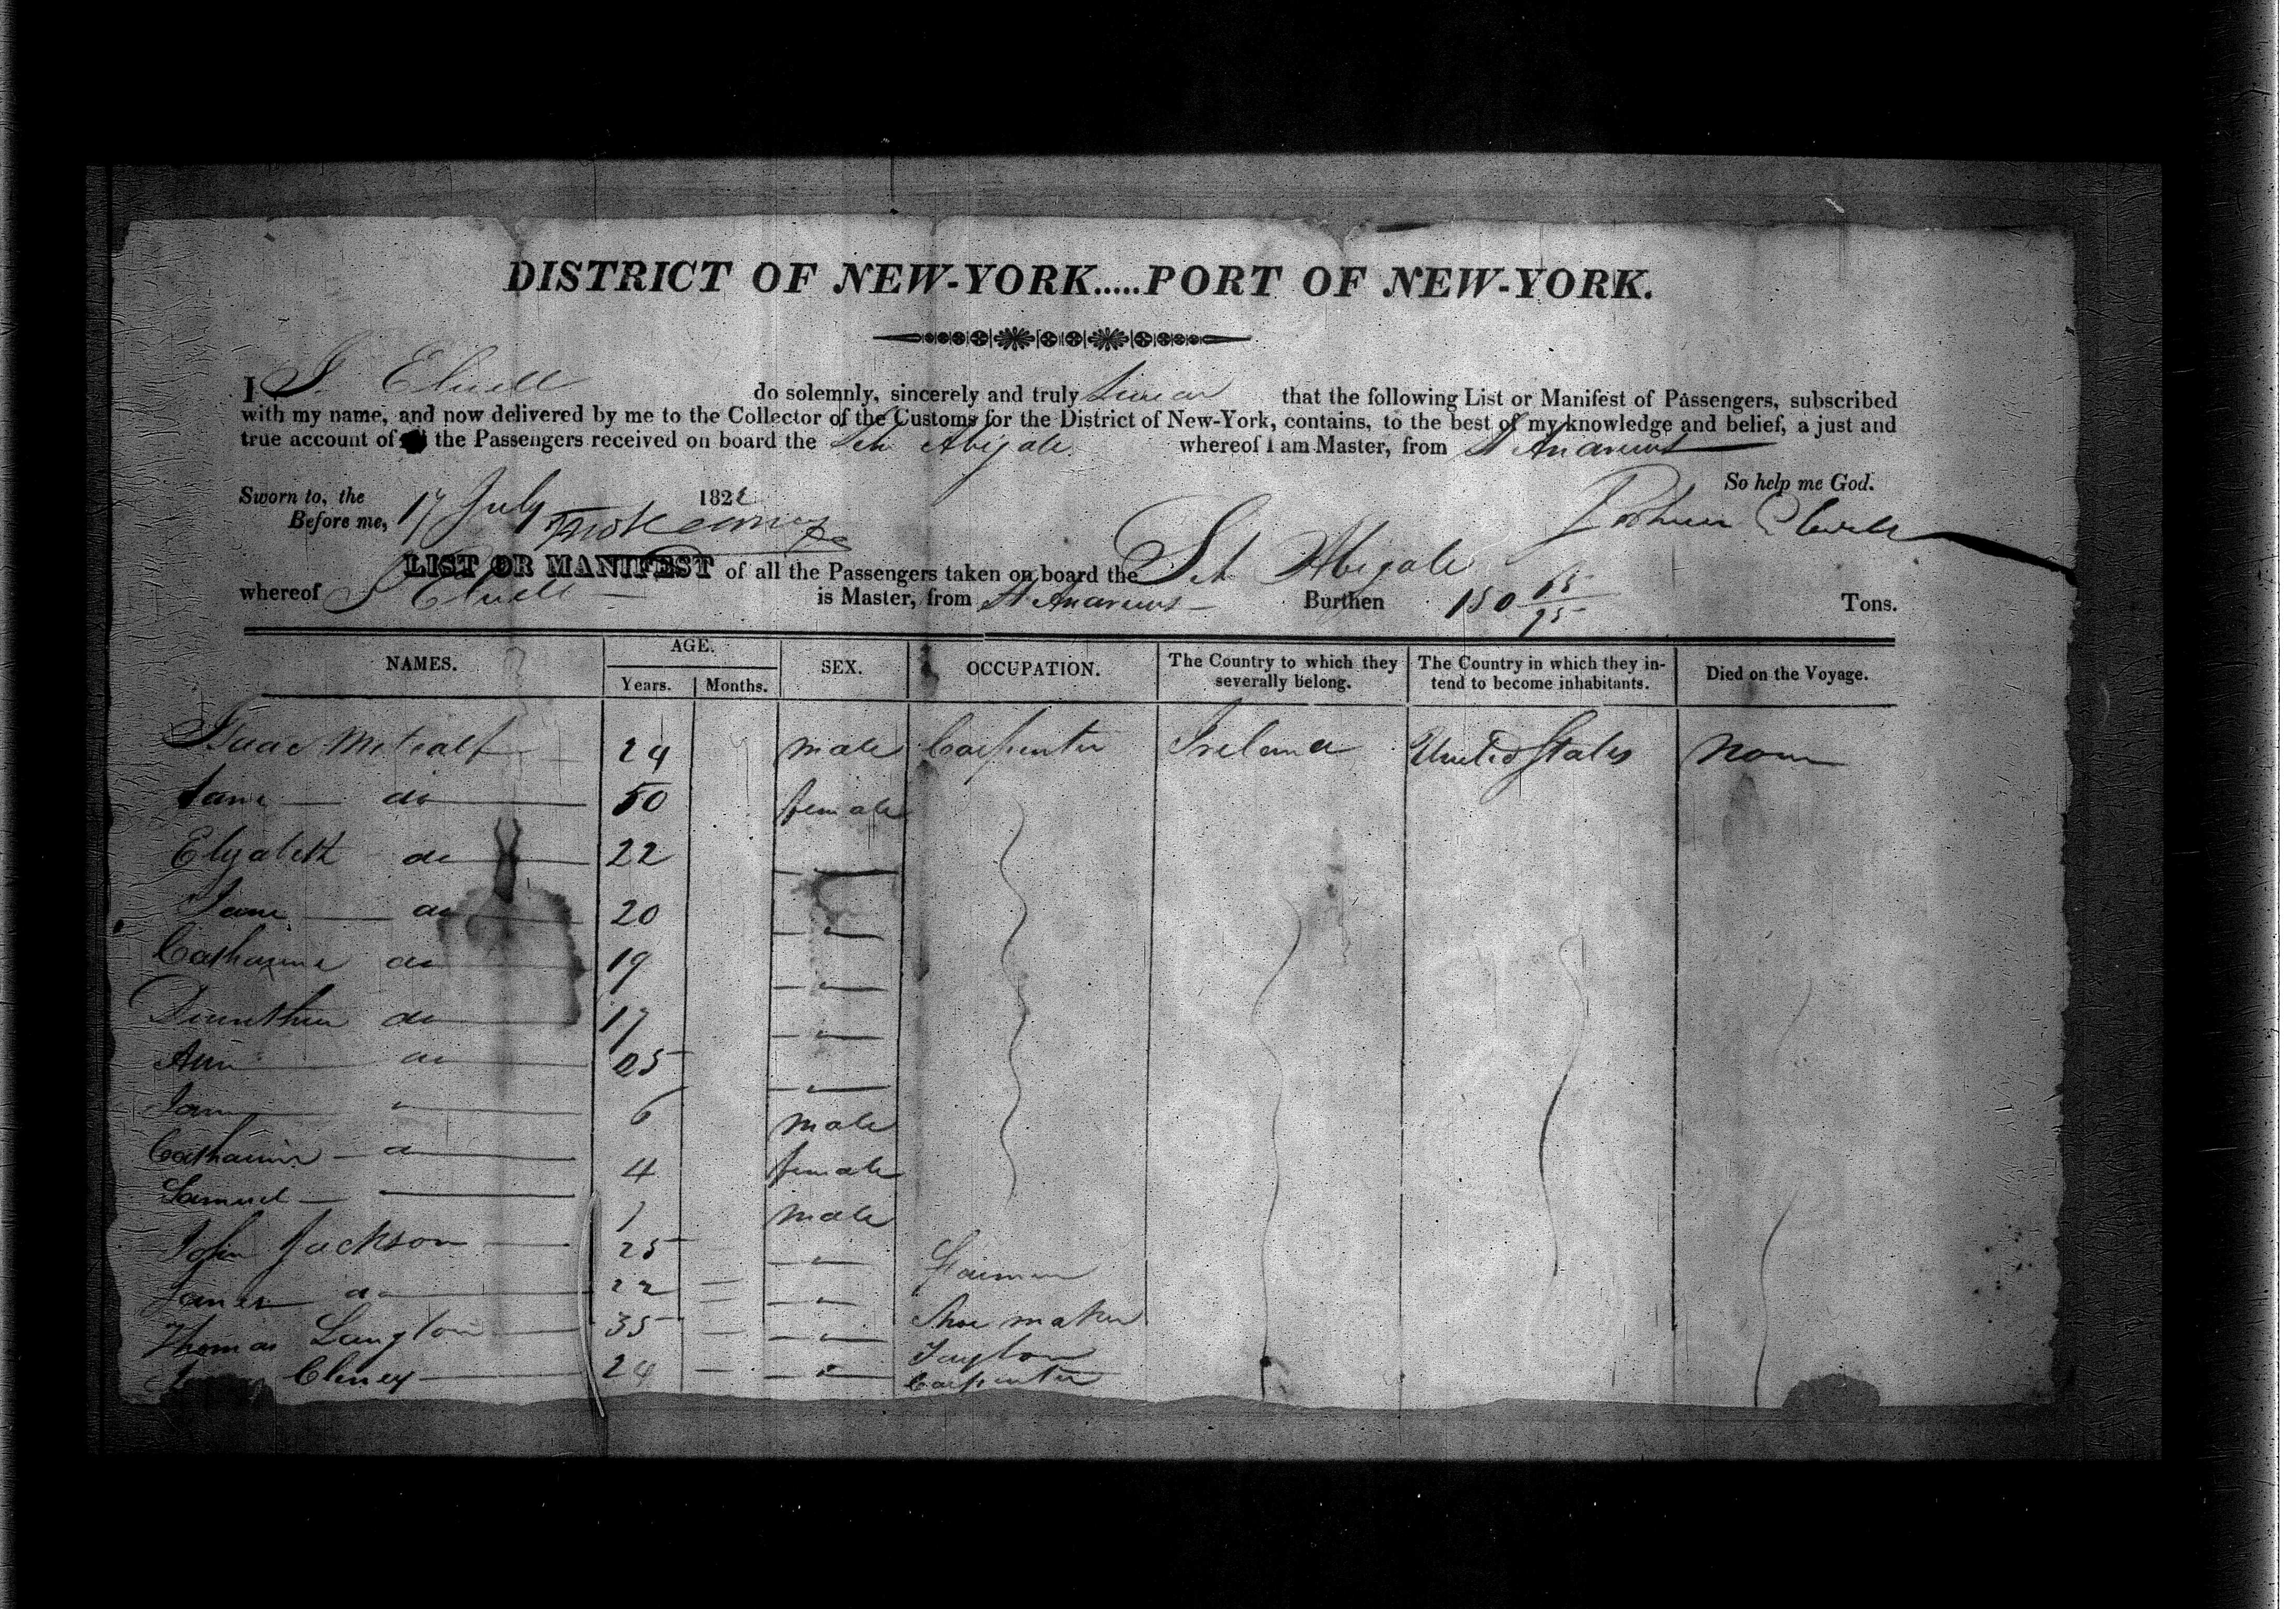 DISTRICT OF NEW-YORK.....PORT OF NEW-YORK.
I J. Elwell do solemnly, sincerely and truly swear that the following List or Manifest of Passengers, subscribed
with my name, and now delivered by me to the Collector of the Customs for the District of New-York, contains, to the best of my knowledge and belief, a just and
true account of the Passengers received on board the Sch Abigale whereof I am Master, from St Andrews
So help me God.
Sworn to, the 17 July 1822
Before me,
Elwell
LIST OR MANIFEST of all the Passengers taken on board the Sch Abigale
whereof J Elwell is Master, from St Andrews Burthen 150 Tons.
NAMES. AGE. Years. Months. SEX. OCCUPATION. The Country to which they severally belong. The Country in which they intend to become inhabitants. Died on the Voyage.
Isaac Metcalf 24 male Carpenter Ireland United States None
Jane do 50 female
Elyabeth do 22 "
Jane do 20 "
Catharine do 19 "
do 17 "
Ann do 25 "
" 6 male
Catharine do 4 female
Samuel 1 male
John Jackson 25 " Farmer
James do 22 " Shoe maker
Thomas Langton 35 " Taylor
Cluney 24 " Carpenter